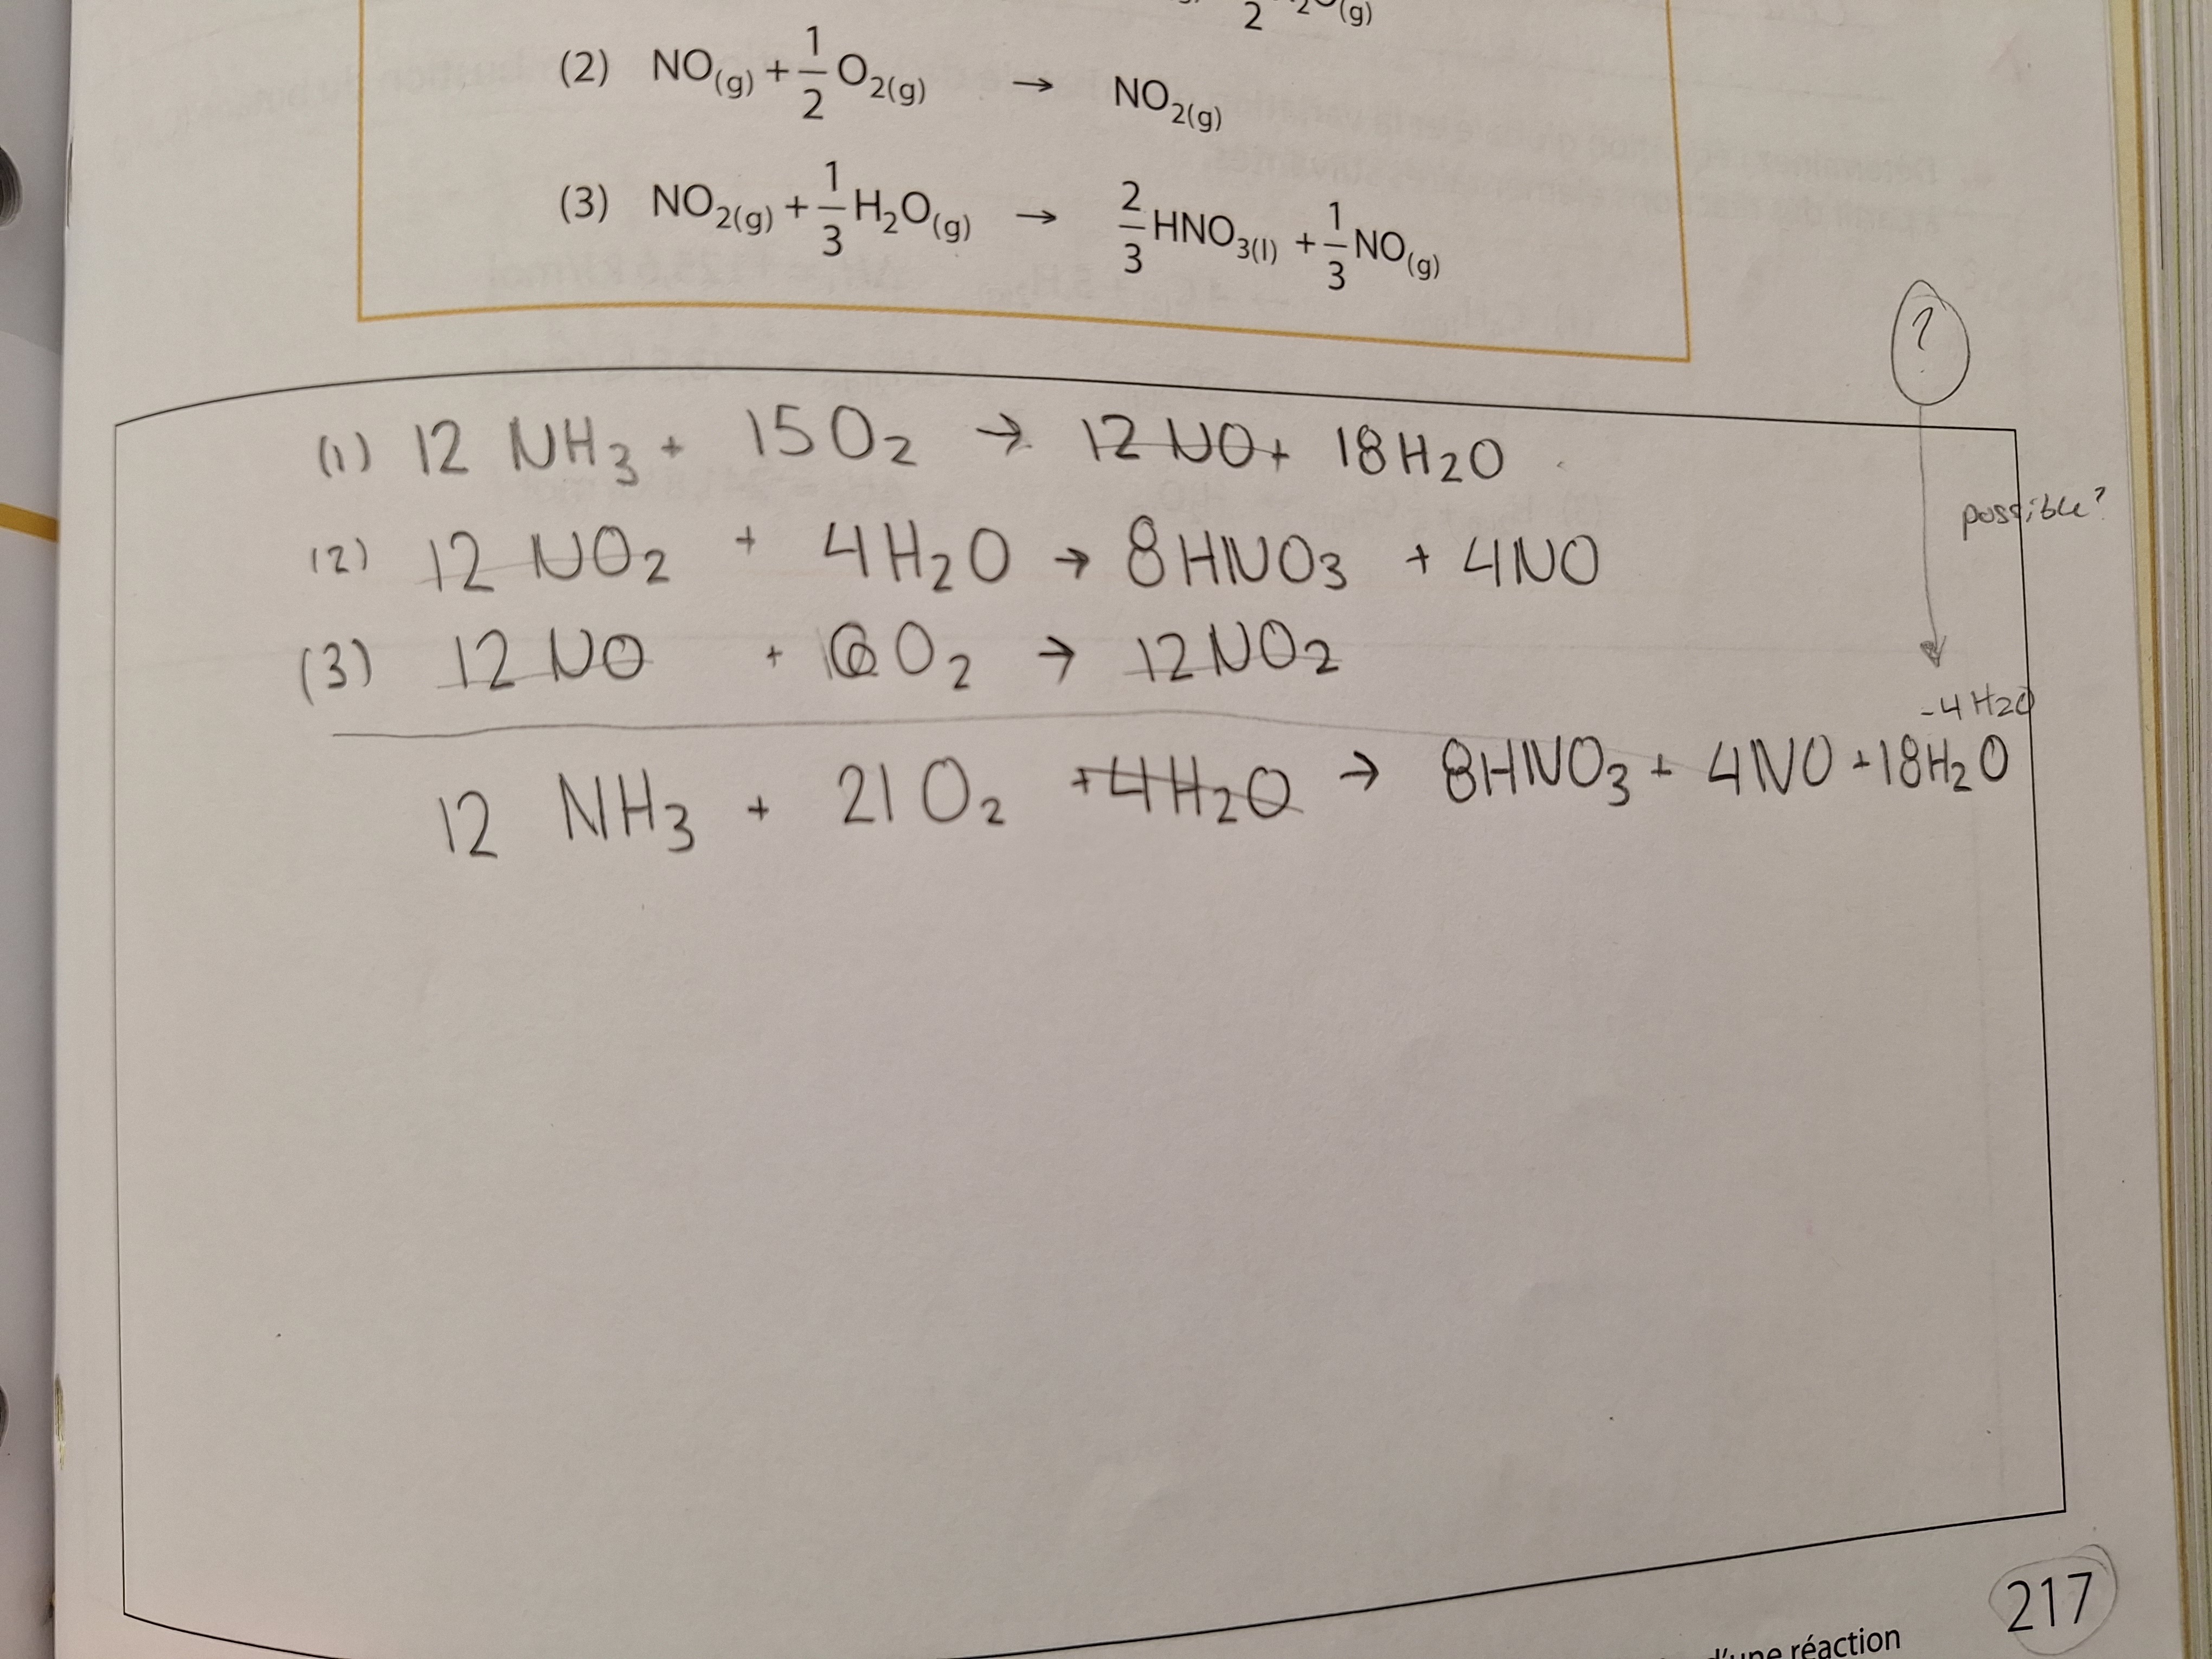 2 2O(g)
(2) NO(g) + 1/2 O2(g) → NO2(g)
(3) NO2(g) + 1/3 H2O(g) → 2/3 HNO3(l) + 1/3 NO(g)
?
(1) 12 NH3 + 15 O2 → 12 NO + 18 H2O
possible?
(2) 12 NO2 + 4 H2O → 8 HNO3 + 4 NO
(3) 12 NO + 6 O2 → 12 NO2
-4 H2O
12 NH3 + 21 O2 + 4 H2O → 8 HNO3 + 4 NO + 18 H2O
d'une réaction
217